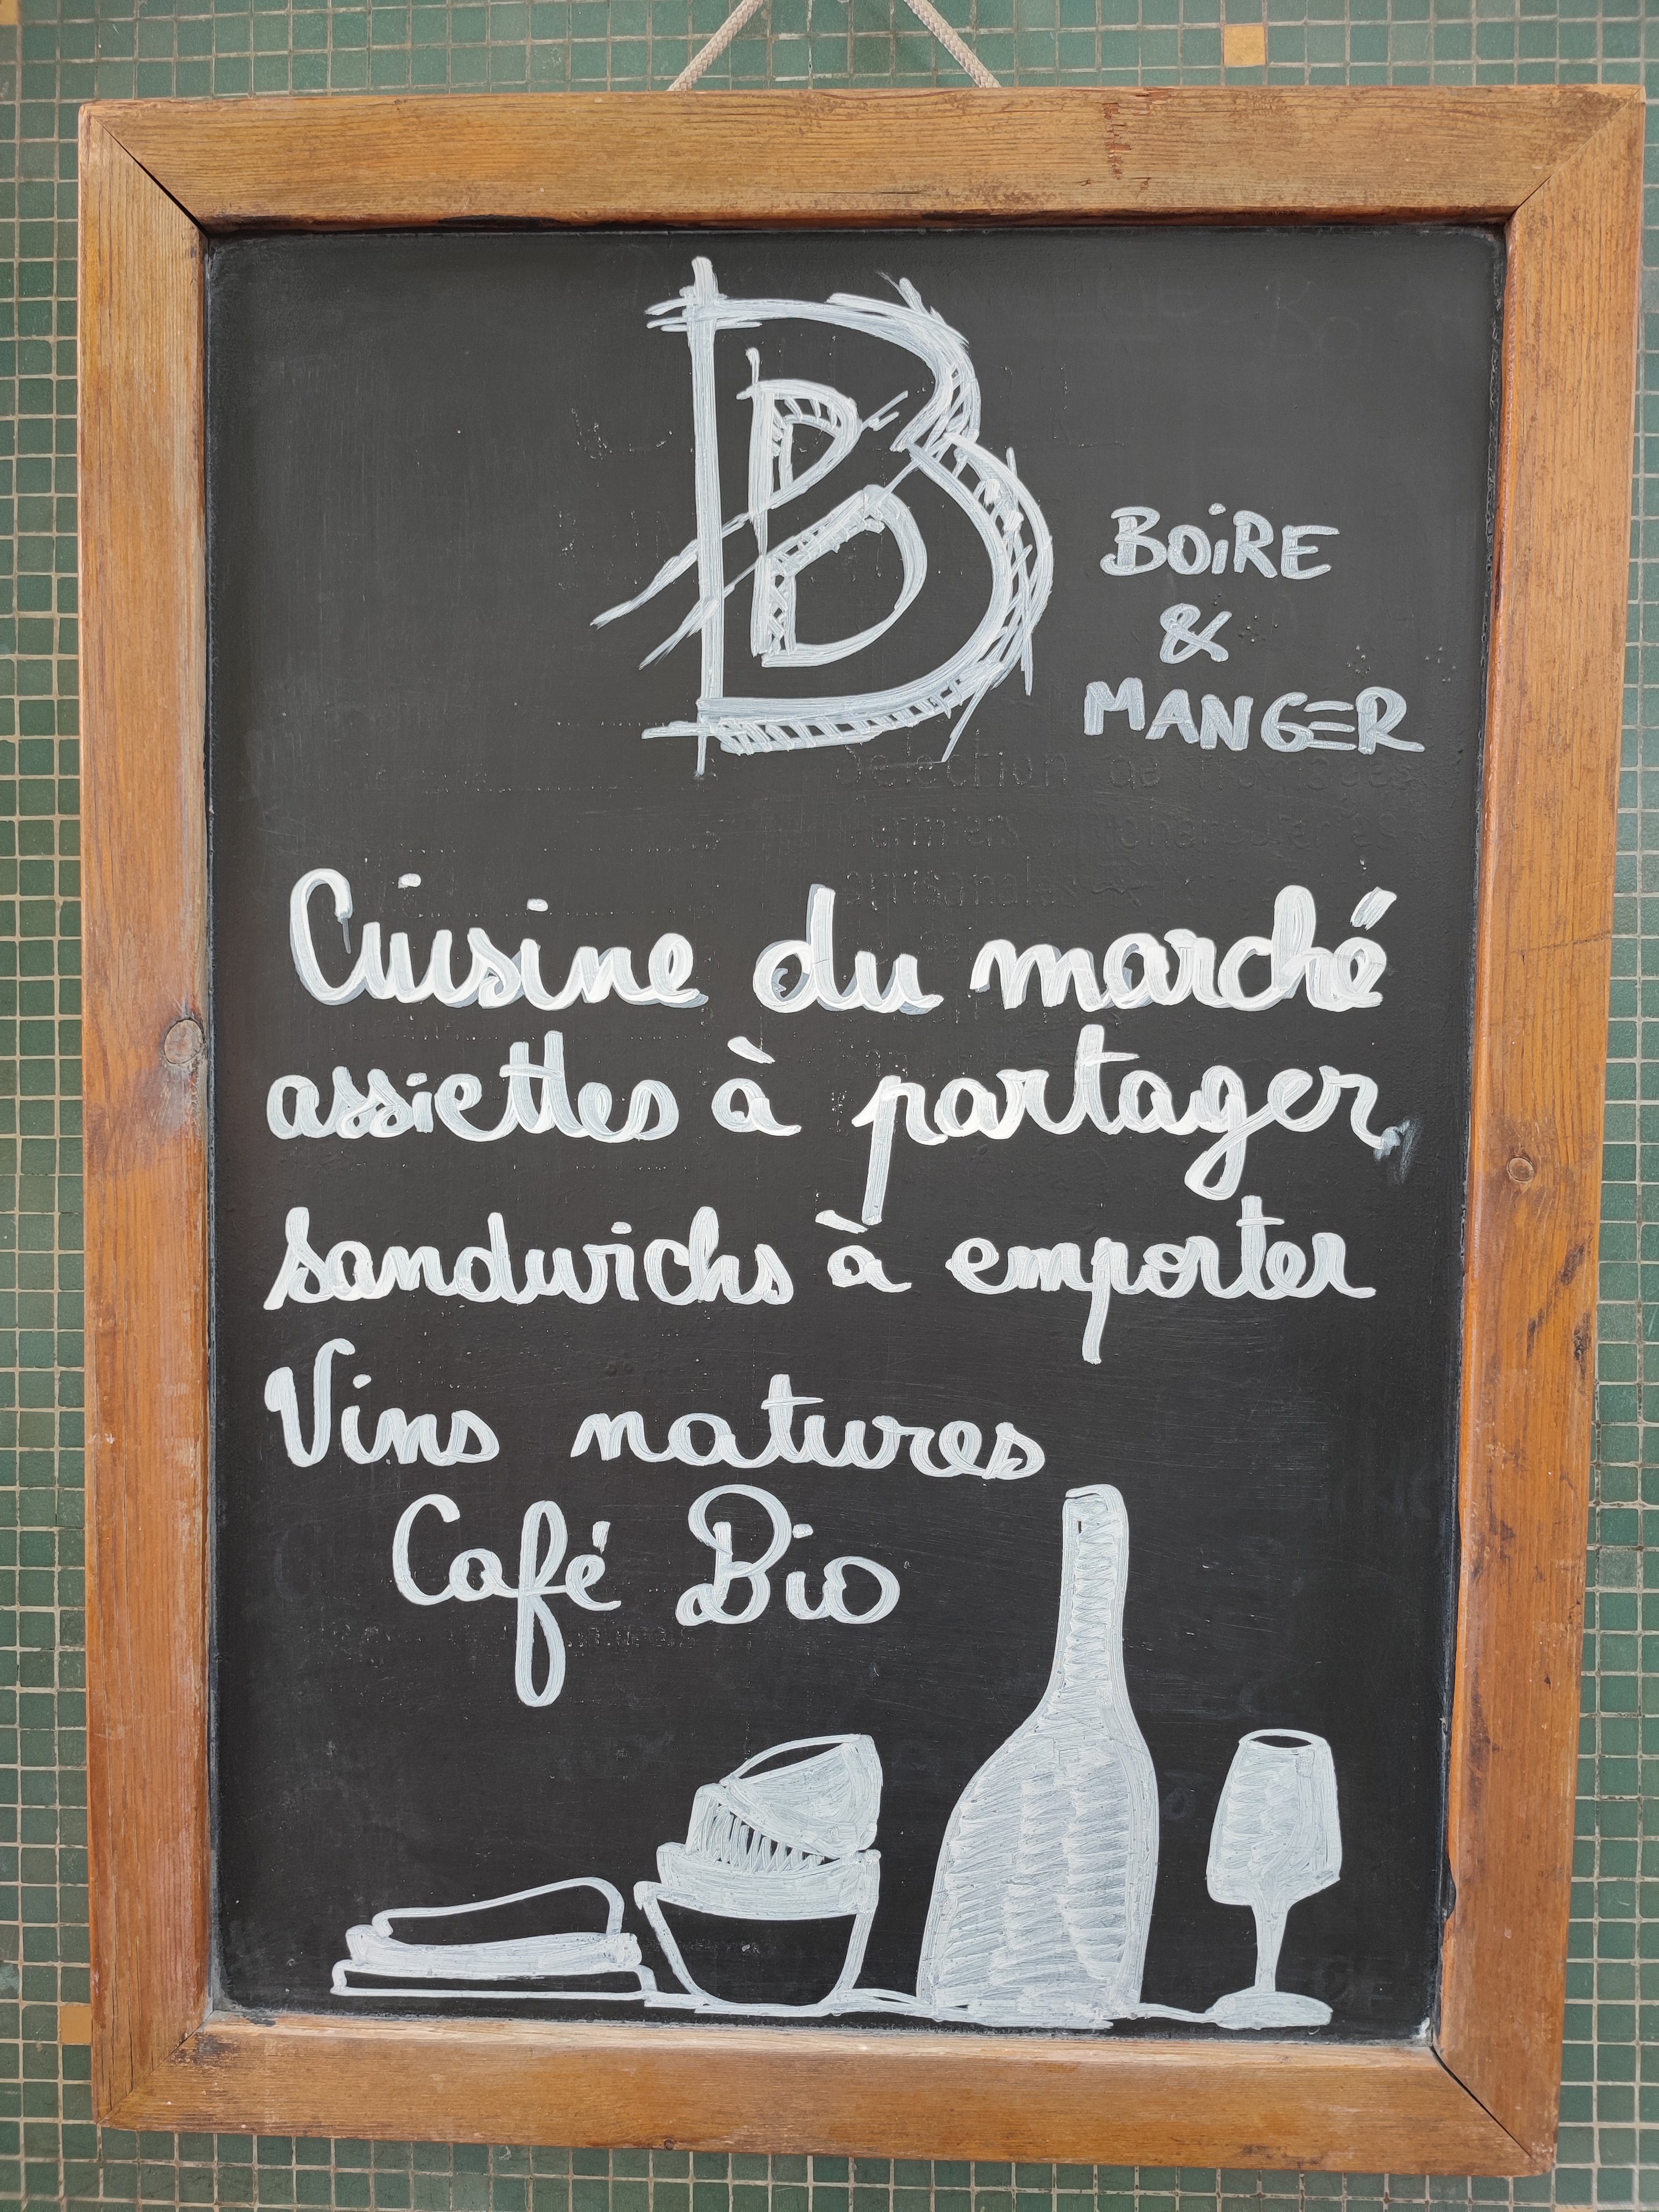 B
BOiRE
&
MANGER
Cuisine du marché
assiettes à partager
sandwichs à emporter
Vins natures
Café Bio